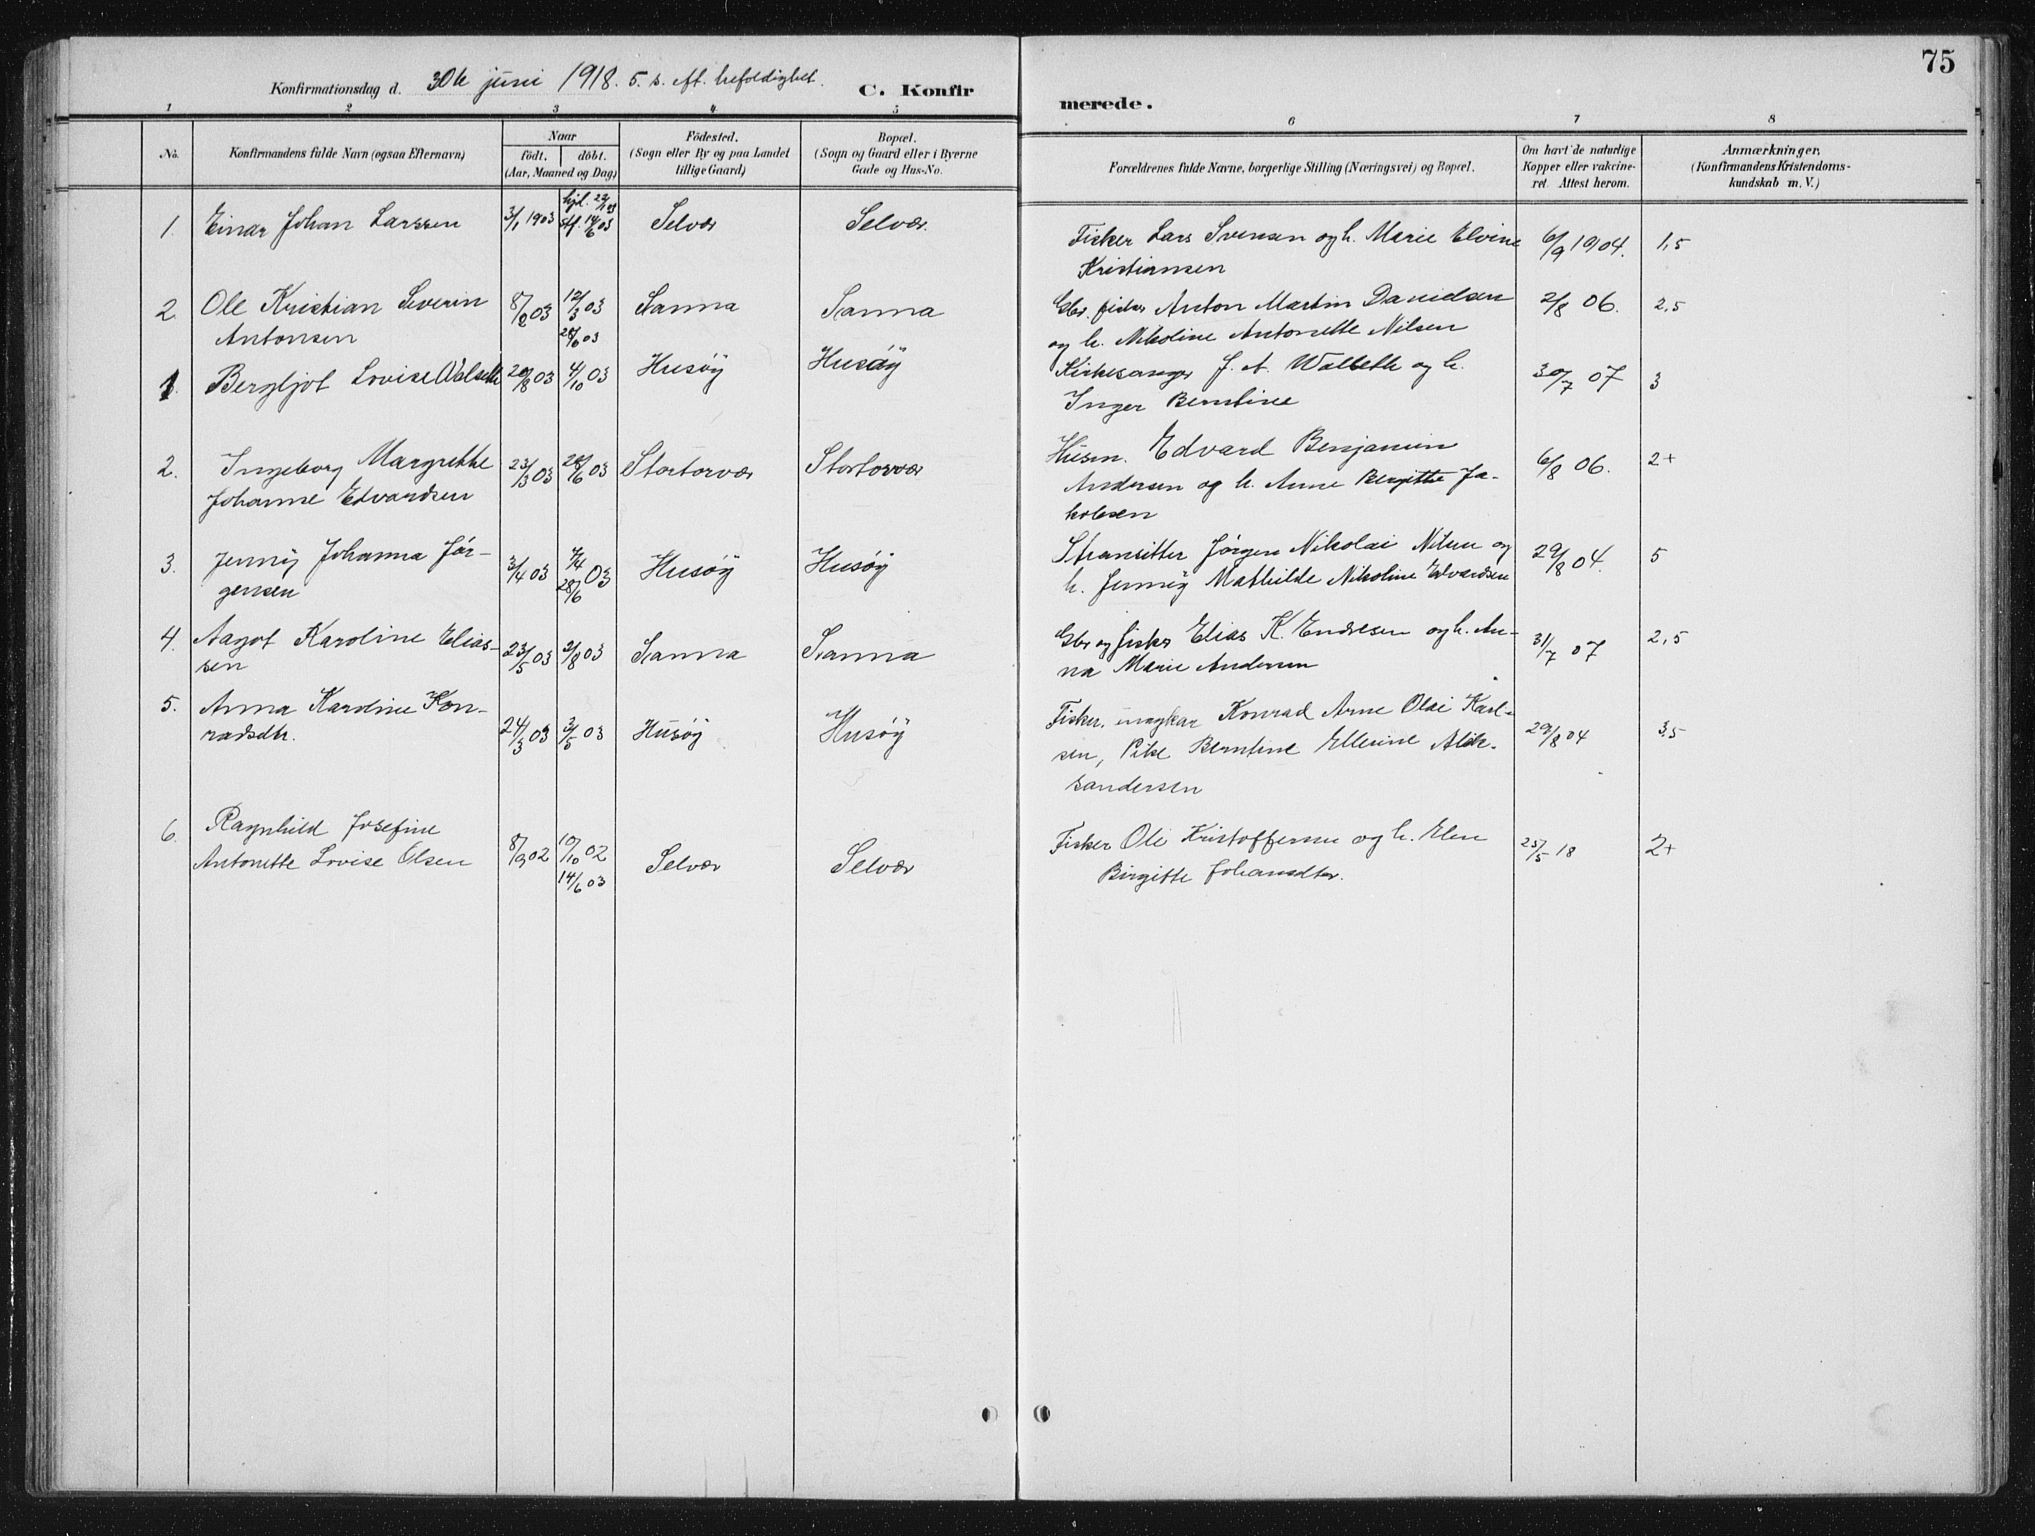 75
Konfirmationsdag d. 30te juni 1918. 5. s. eft. trefoldighet. C. Konfirmerede.
1 2 3 4 5 6 7 8
No. Konfirmandens fulde Navn (ogsaa Efternavn) Naar födt. döbt. (Aar, Maaned og Dag) Födested. (Sogn eller By og paa Landet tillige Gaard) Bopæl. (Sogn og Gaard eller i Byerne Gade og Hus-No. Forældrenes fulde Navne, borgerlige Stilling (Næringsvei) og Bopæl. Om havt de naturlige Kopper eller vakcineret. Attest herom. Anmærkninger, (Konfirmandens Kristendomskundskab m. V.)
1. Einar Johan Larssen 3/1 1903 hjd. 22/1 03 stf. 14/6 03 Selvær Selvær. Fisker Lars Svensen og h. Marie Elvine 6/9 1904. 1,5
Kristiansen
2. Ole Kristian Severin 8/2 03 12/3 03 Sanna Sanna Gbr. fisker Anton Martin Danielsen 2/8 06. 2,5
Antonsen 28/6 03 og h. Nikoline Antonette Nilsen
1. Bergljot Lovise Walseth 20/8 03 4/10 03 Husöy Husöy Kirkesanger J. A. Walseth og h. 30/7 07 3
Inger Berntine
2. Ingeborg Margrethe 23/3 03 28/6 03 Stortorvær Stortorvær Husm. Edvard Benjamin 6/8 06. 2+
Johanne Edvardsen Andersen og h. Anne Bergitte Ja-
kobsen
3. Jenny Johanna Jør- 3/4 03 7/4 28/6 03 Husöy Husöy Stransitter Jørgen Nikolai Nilsen og 29/8 04. 5
gensen h. Jenny Mathilde Nikoline Edvardsen
4. Aagot Karoline Elias- 23/5 03 2/8 03 Sanna Sanna Gbr og fisker Elias K. Endresen og h. An- 31/7 07 2,5
sen na Marie Andersen
5. Anna Karoline Kon- 24/3 03 3/5 03 Husöy Husöy Fisker, ungkar Konrad Arne Olai Karl- 29/8 04 3,5
radsdtr. sen, Pike Berntine Ellesine Alek-
sandersen
6. Ragnhild Josefine 8/9 02 10/10 02 Selvær Selvær Fisker Ole Kristoffersen og h. Elen 25/5 18 2+
Antonette Lovise Olsen 14/6 03 Birgitte Johansdtr.